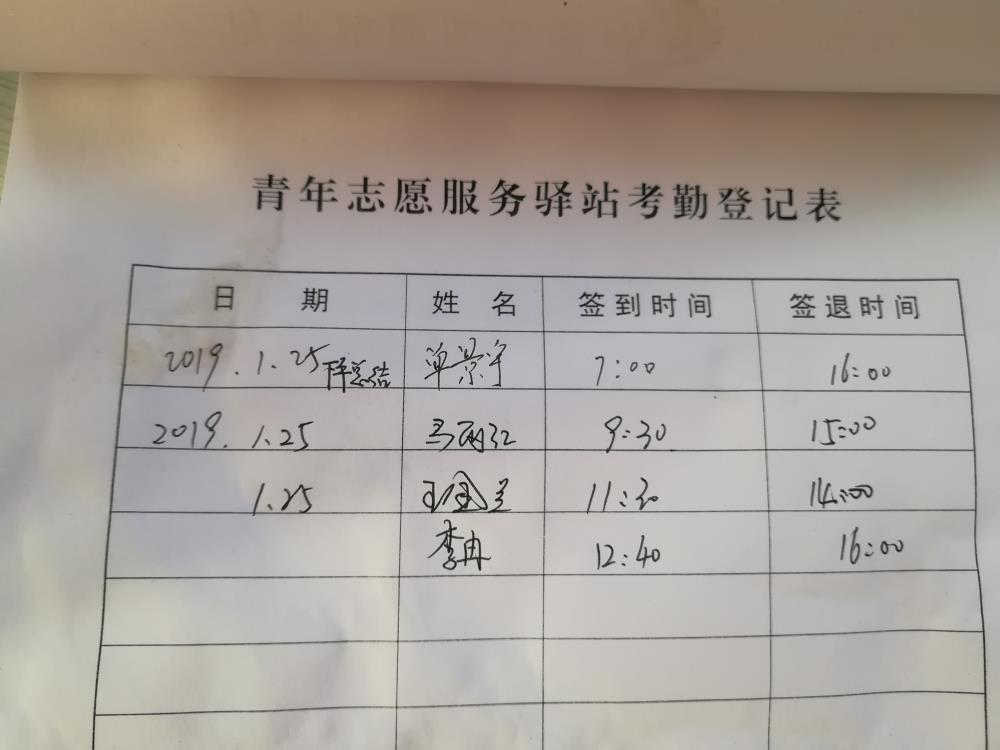 青年志愿服务驿站考勤登记表
日 期 姓 名 签到时间 签退时间
2019.1.25 总结 单景宇 7:00 16:00
2019.1.25 马丽红 9:30 15:00
1.25 王 兰 11:30 14:00
李冉 12:40 16:00